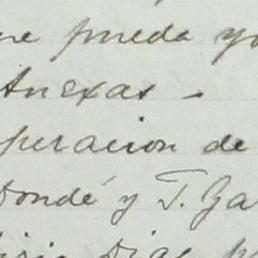 ne pueda yo
Anexas -
peracion de
Dondé y T. Za